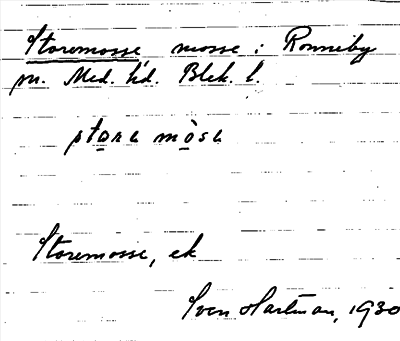 Storemosse mosse i Ronneby
m. Med. hd. Blek. l.
stora mòsa
Storemosse, ek
Sven Hartman, 1930